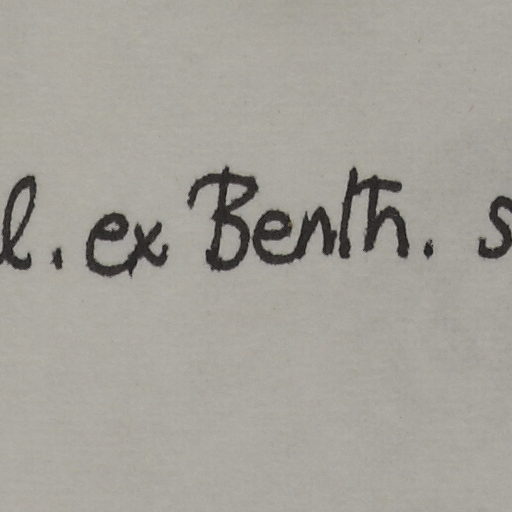 l. ex Benth. s